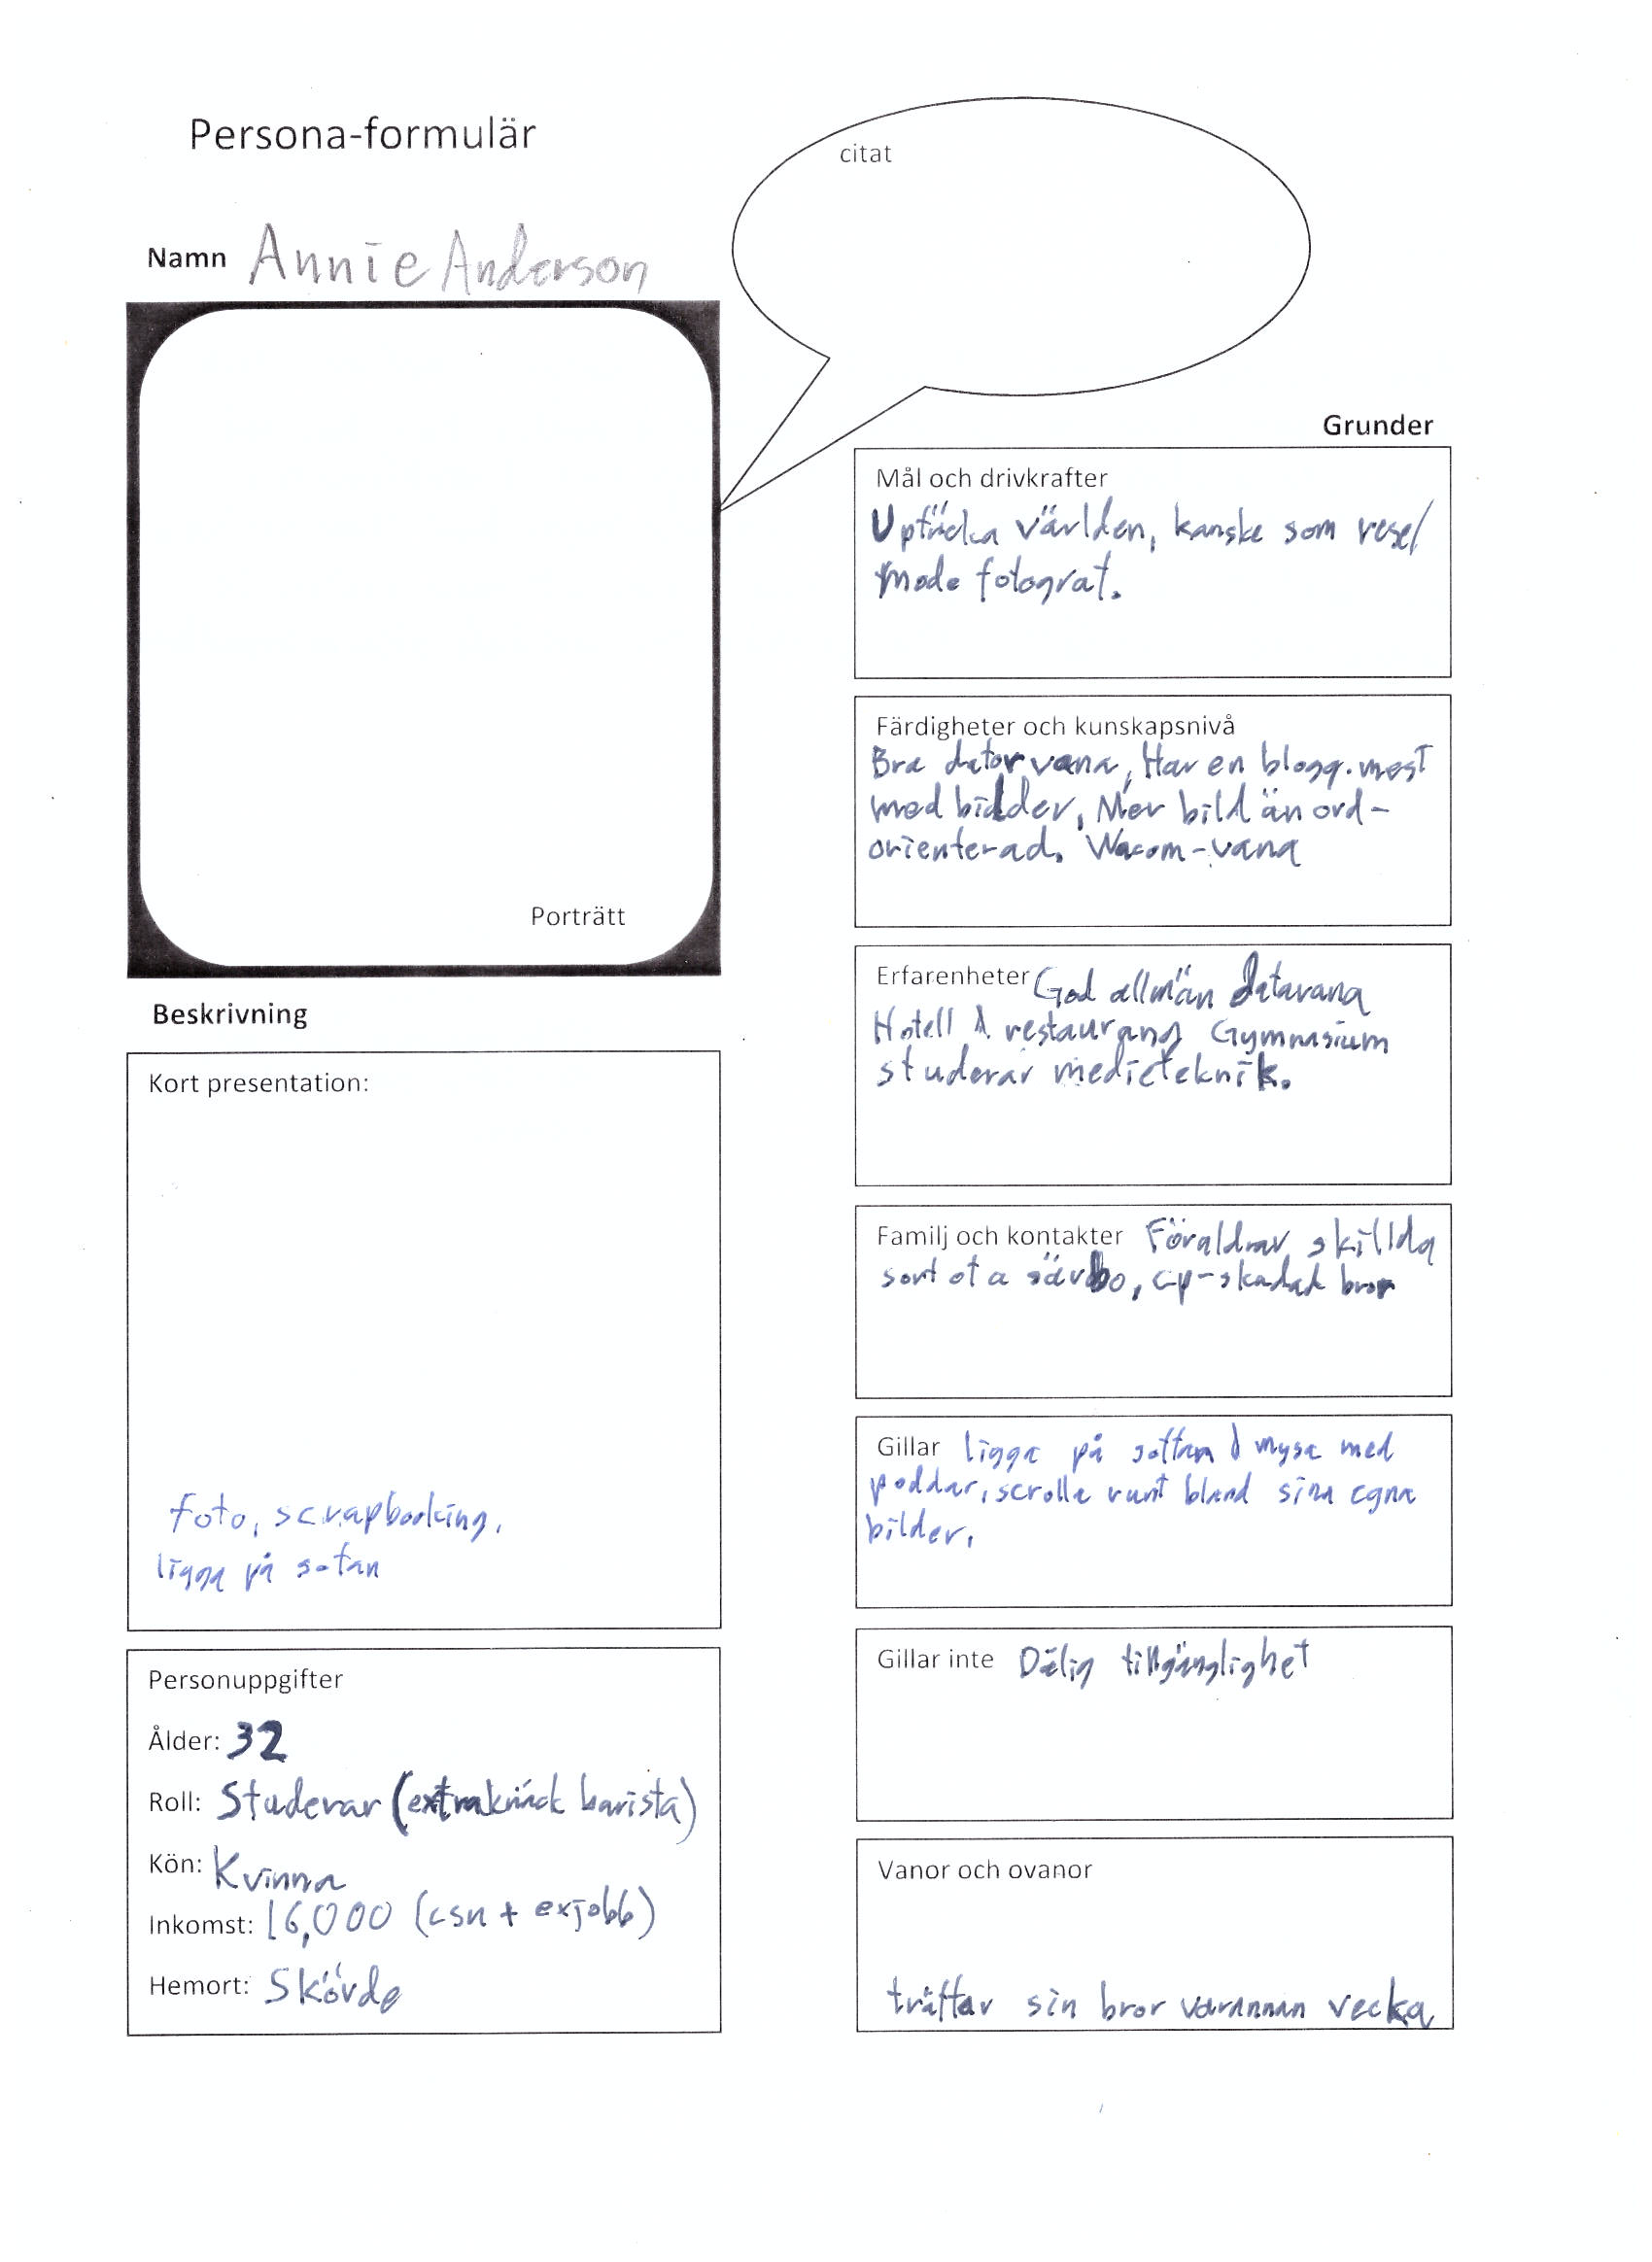 Persona-formulär
citat
Namn Annie Anderson
Porträtt
Beskrivning
Kort presentation:
foto, scrapbooking,
ligga på sofan
Personuppgifter
Ålder: 32
Roll: Studerar (extraknäck barista)
Kön: Kvinna
Inkomst: 16,000 (csn + exjobb)
Hemort: Skövde
Grunder
Mål och drivkrafter
Uptäcka världen, kanske som rese/
mode fotograf.
Färdigheter och kunskapsnivå
Bra datorvana, Har en blogg. mest
med bilder, Mer bild än ord-
orienterad. Wacom-vana
Erfarenheter God allmän datavana
Hotell & restaurang Gymnasium
studerar medieteknik.
Familj och kontakter Föräldrar skillda
sort of a särbo, cp-skadad bror
Gillar ligga på soffan & mysa med
poddar, scrolla runt bland sina egna
bilder.
Gillar inte Dålig tillgänglighet
Vanor och ovanor
träffar sin bror varannan vecka